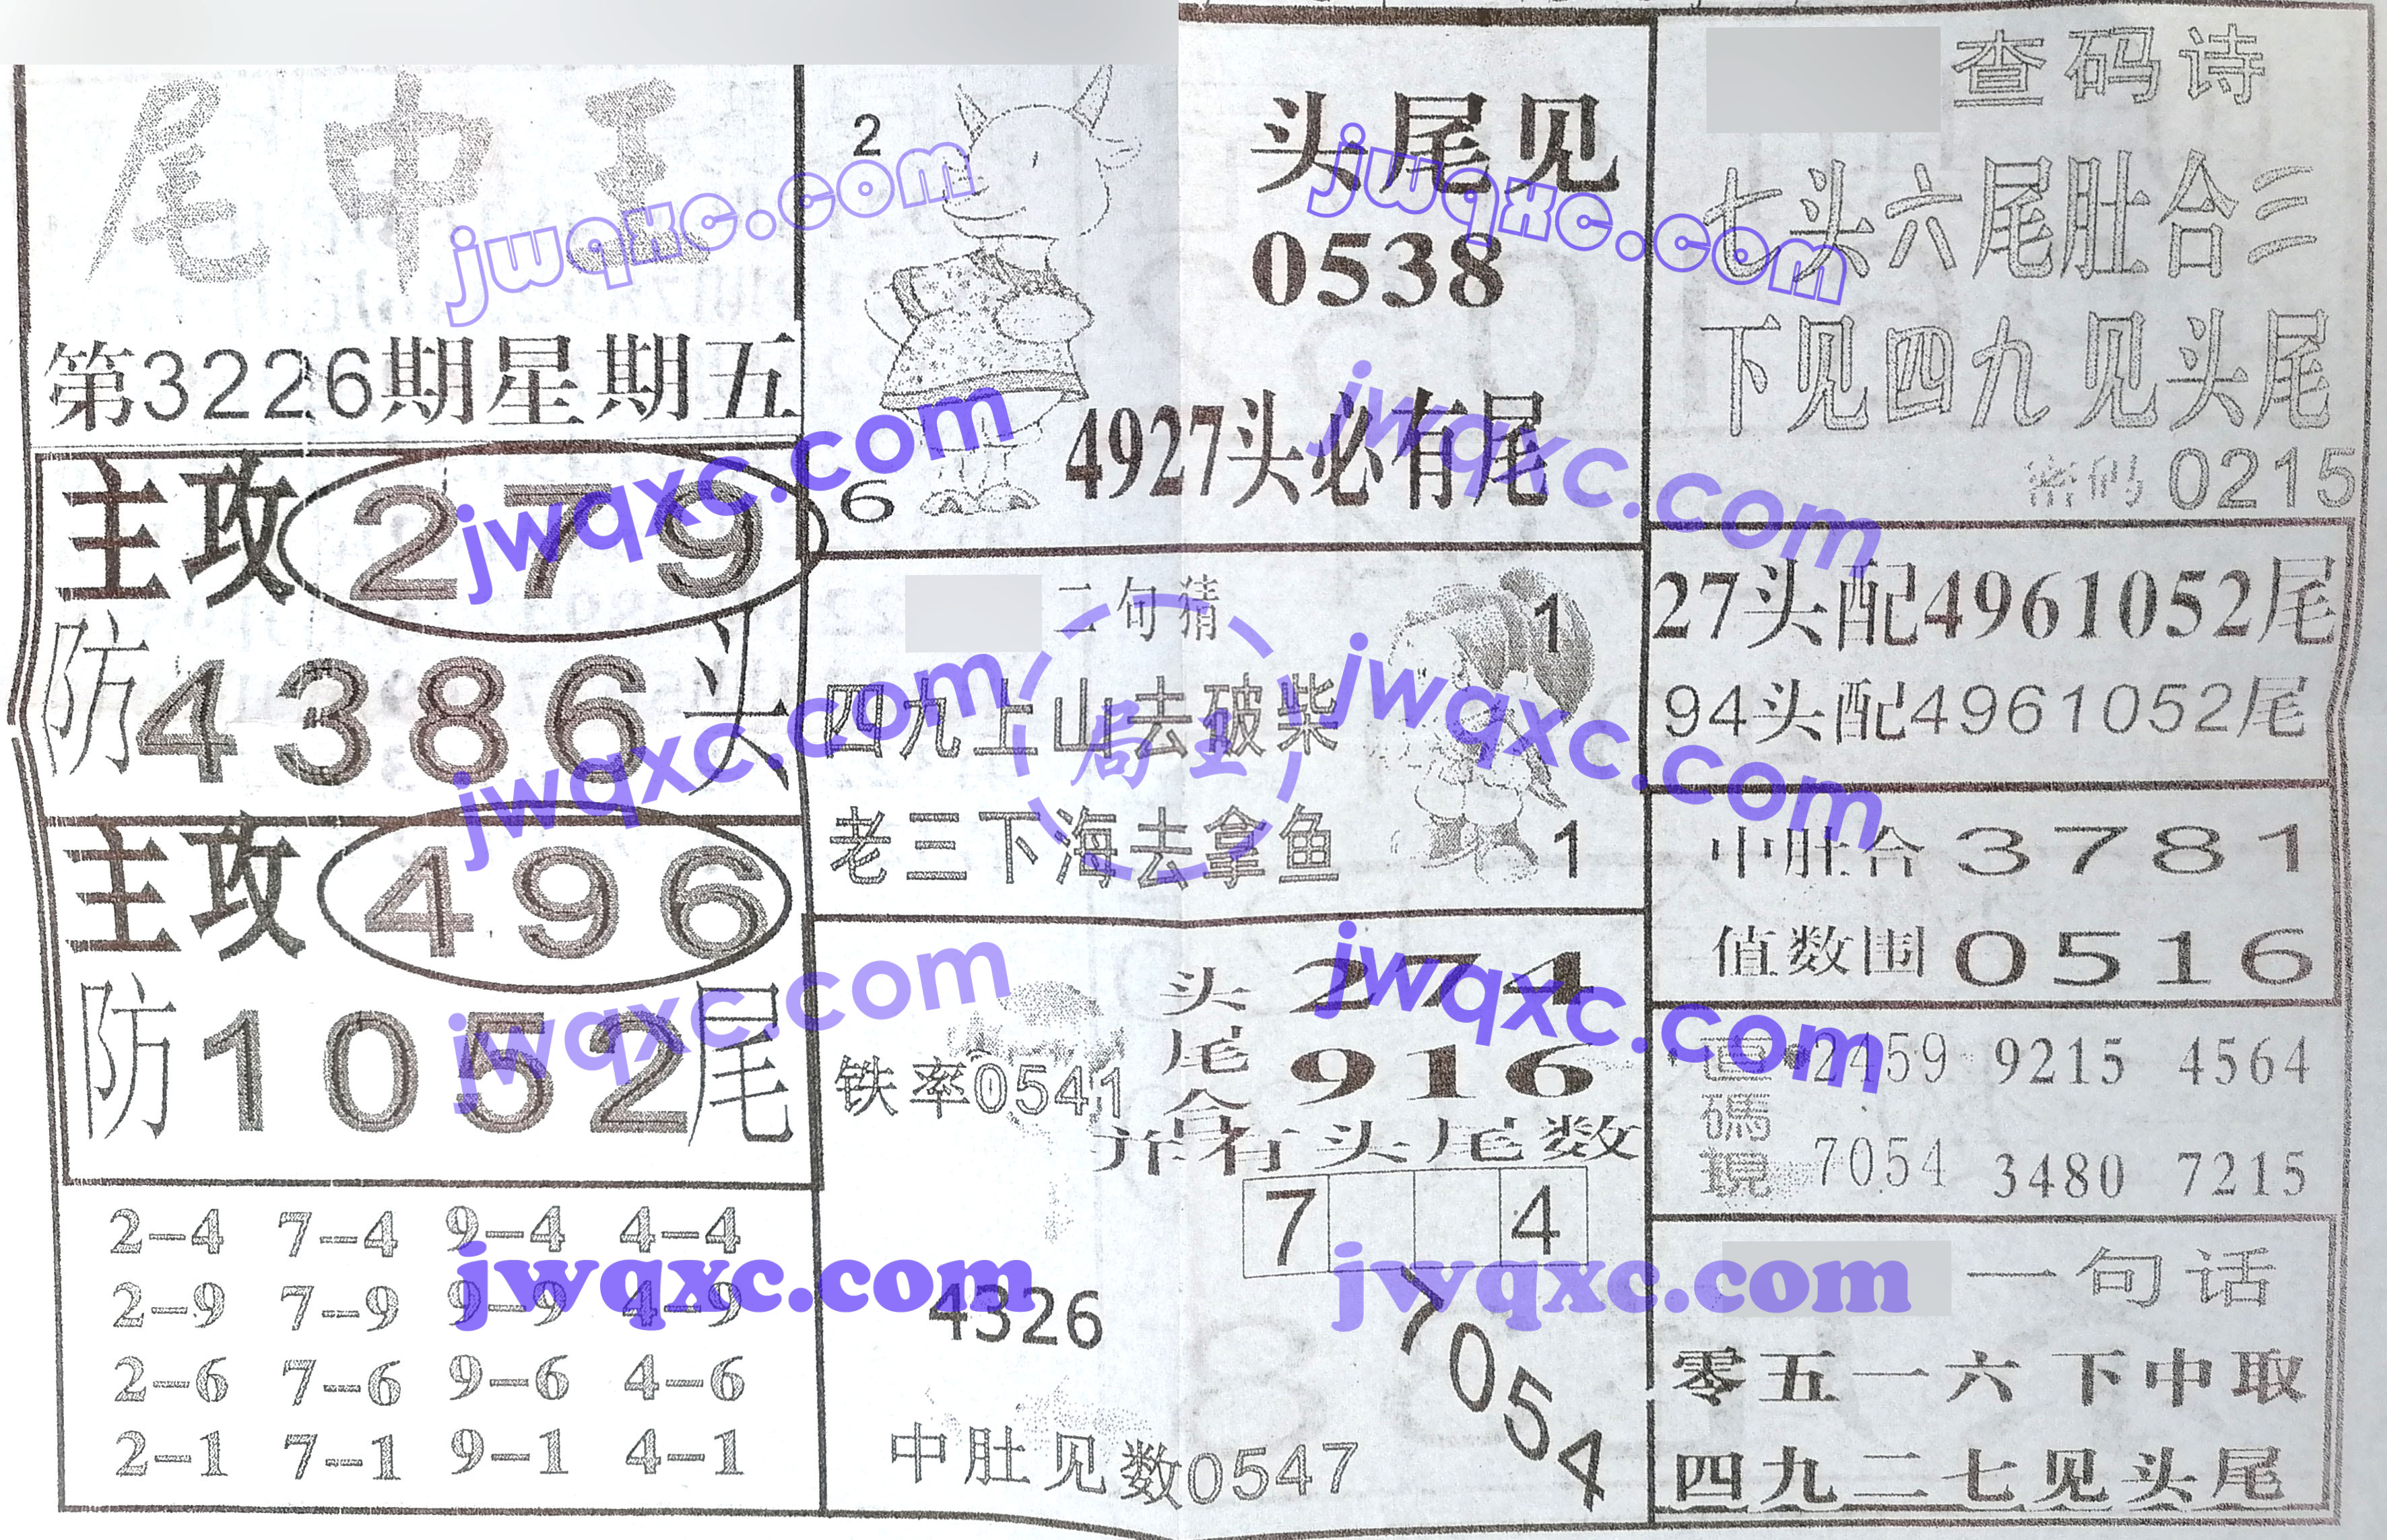 尾中王
第3226期星期五
主攻 279
防4386头
主攻 496
防1052尾
2-4 7-4 9-4 4-4
2-9 7-9 9-9 4-9
2-6 7-6 9-6 4-6
2-1 7-1 9-1 4-1
2
6
头尾见
0538
4927头必有尾
二句猜
四九上山去破柴
老三下海去拿鱼
1
1
局王
铁率0541
头尾合
274
916
并有头尾数
7 4
4326
7054
中肚见数0547
查码诗
七头六尾肚合三
下见四九见头尾
密码0215
27头配4961052尾
94头配4961052尾
中肚合3781
值数围0516
直碼現
2459 9215 4564
7054 3480 7215
一句话
零五一六下中取
四九二七见头尾
jwqxc.com
jwqxc.com
jwqxc.com
jwqxc.com
jwqxc.com
jwqxc.com
jwqxc.com
jwqxc.com
jwqxc.com
jwqxc.com